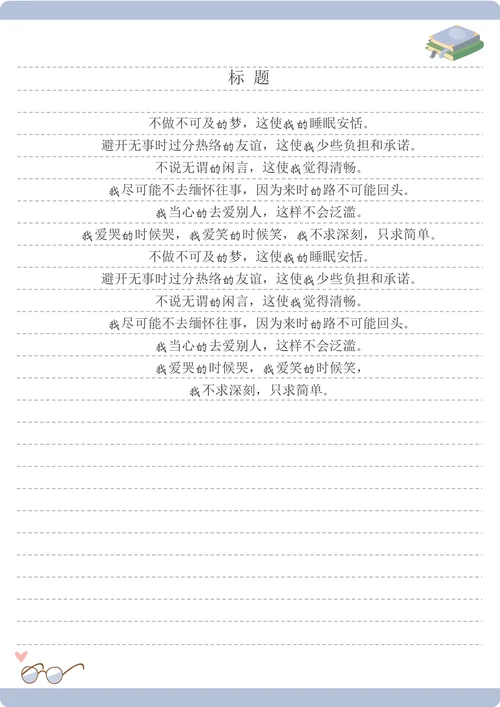 标 题
不做不可及的梦，这使我的睡眠安恬。
避开无事时过分热络的友谊，这使我少些负担和承诺。
不说无谓的闲言，这使我觉得清畅。
我尽可能不去缅怀往事，因为来时的路不可能回头。
我当心的去爱别人，这样不会泛滥。
我爱哭的时候哭，我爱笑的时候笑，我不求深刻，只求简单。
不做不可及的梦，这使我的睡眠安恬。
避开无事时过分热络的友谊，这使我少些负担和承诺。
不说无谓的闲言，这使我觉得清畅。
我尽可能不去缅怀往事，因为来时的路不可能回头。
我当心的去爱别人，这样不会泛滥。
我爱哭的时候哭，我爱笑的时候笑，
我不求深刻，只求简单。